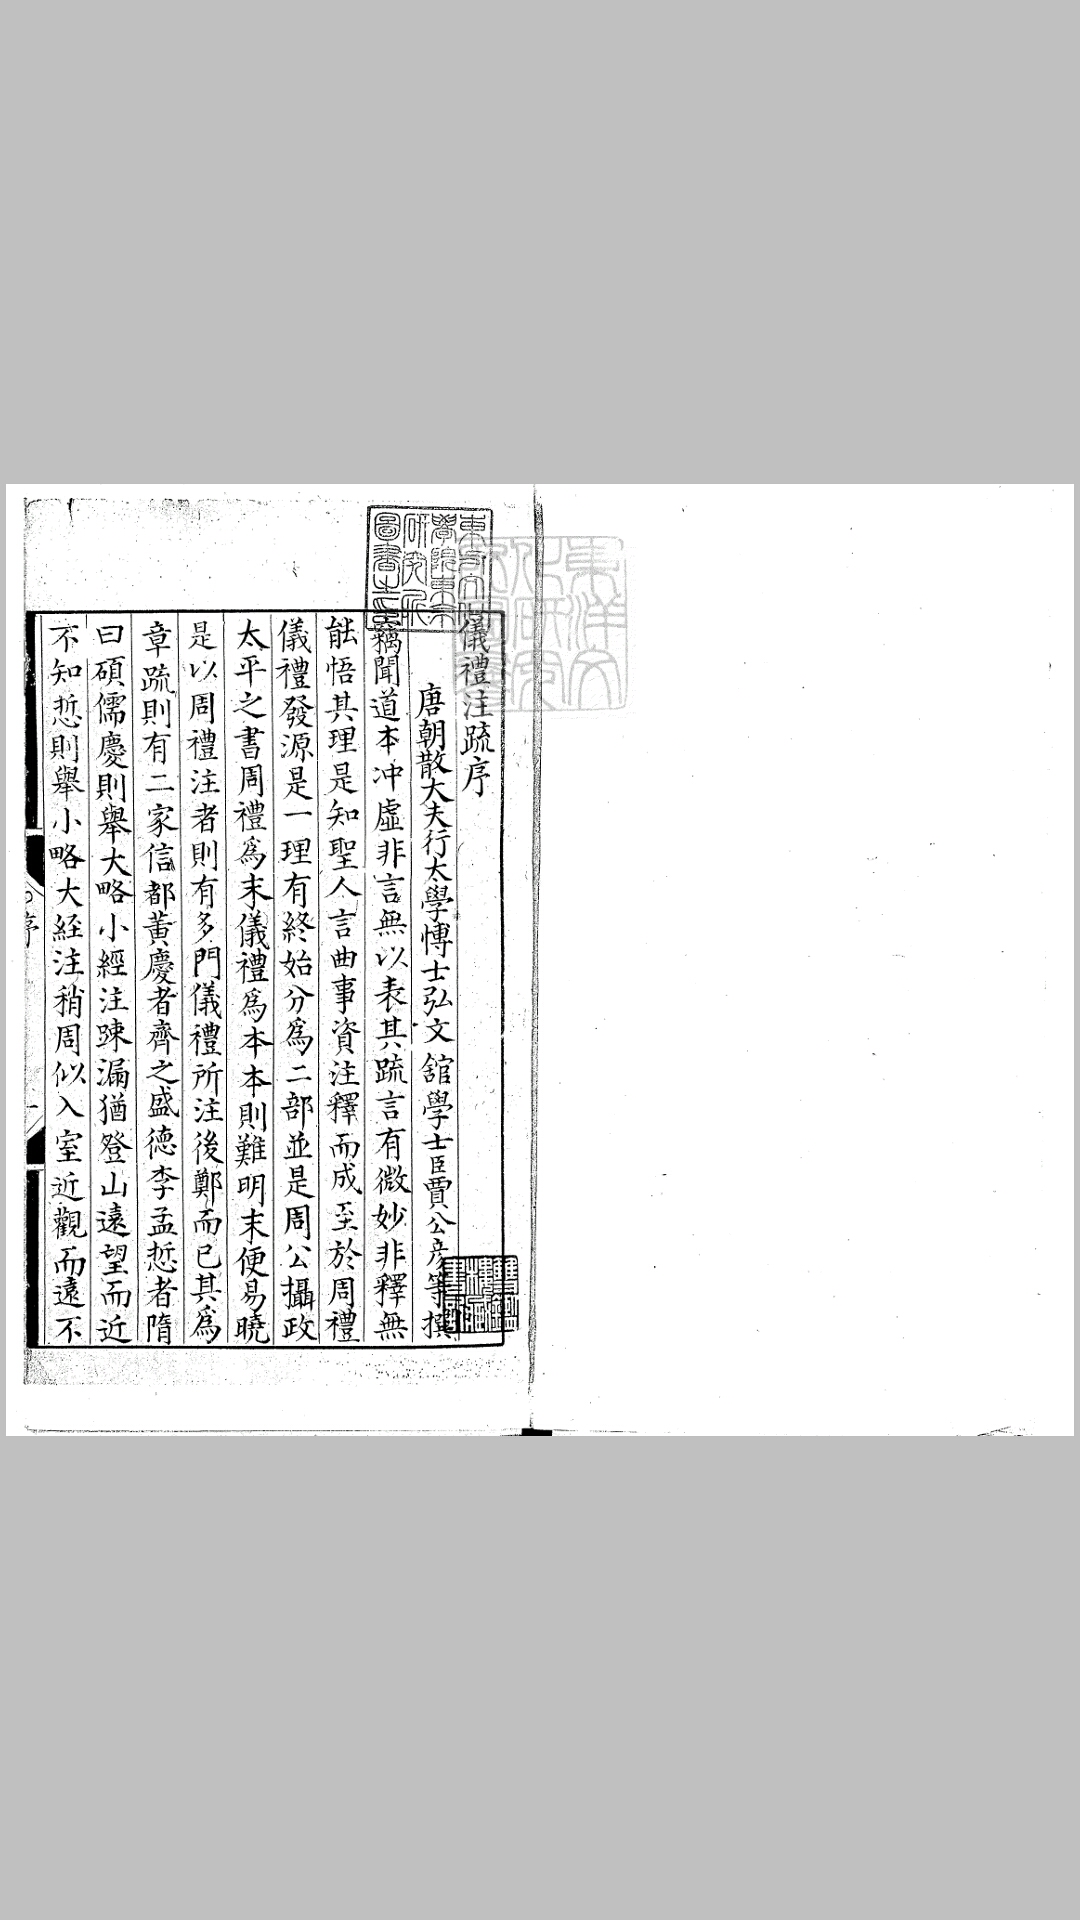 儀禮注疏序
唐朝散大夫行太學愽士弘文舘學士臣賈公彦等撰
竊聞道本冲虛非言無以表其疏言有微妙非釋無
能悟其理是知聖人言曲事資注釋而成至於周禮
儀禮發源是一理有終始分爲二部並是周公攝政
太平之書周禮爲末儀禮爲本本則難明末便易曉
是以周禮注者則有多門儀禮所注後鄭而已其爲
章疏則有二家信都黃慶者齊之盛德李孟悊者隋
曰碩儒慶則舉大略小經注踈漏猶登山遠望而近
不知悊則舉小略大経注稍周似入室近觀而遠不
序
一
東方文化
學院東京
研究所
圖書之印